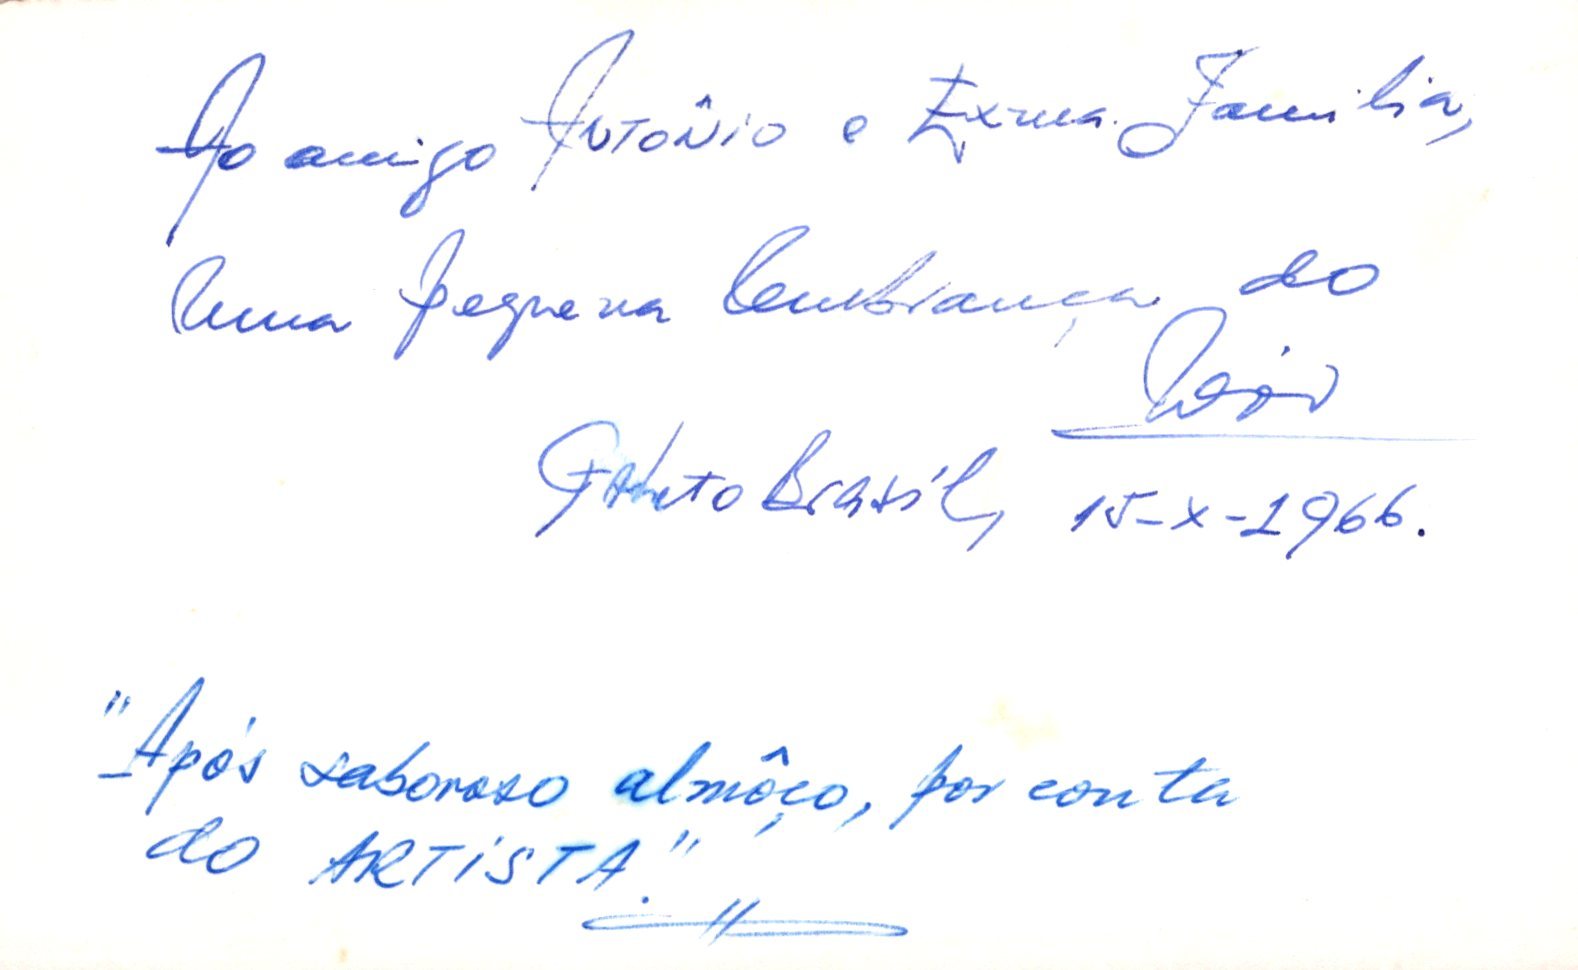 Ao amigo Antônio e Exma. Família,
Uma pequena lembrança do
Brasil, 15-X-1966.
"Após saboroso almôço, por conta
do ARTISTA."